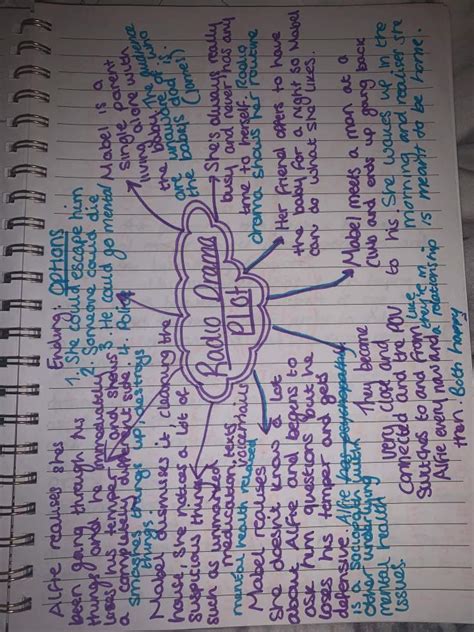 Radio Drama
PLOT
Mabel is a
single parent
living alone with
the baby. The audience
unaware of who
are the baby's dad is.
(Jamel)
She's always really
busy and never has any
time to herself. Radio
drama shows her routine
Her friend offers to have
the baby for a night so Mabel
can do what she likes.
Mabel meets a man at a
club and ends up going back
to his. She wakes up in the
morning and realises she
is meant to be home.
They become
very close and
connected and the POV
switches to and from
Alfie every now and
then.
like
they're in
a relationship
Both happy
Mabel realises
she doesn't know a lot
about Alfie and begins to
ask him questions but he
loses his temper and gets
defensive. Alfie
is a sociopath with
other underlying
mental health
issues.
Mabel dismisses it cleaning the
house, she notices a lot of
suspicious things
such as unmarked
medication, texts,
voicemails
mental health related
Alfie realises she
been going through his
things and he immediately
loses his temper and shows
a completely different side
smashes things up, destroys
things.
Ending: OPTIONS
1. She could escape him
2. Someone could die
3. He could go mental
4. Police